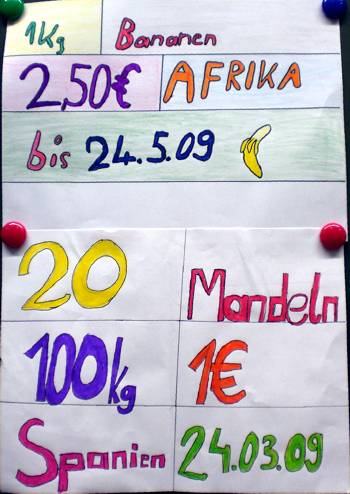 1Kg Bananen
2,50€ AFRIKA
bis 24.5.09
20 Mandeln
100kg 1€
Spanien 24.03.09